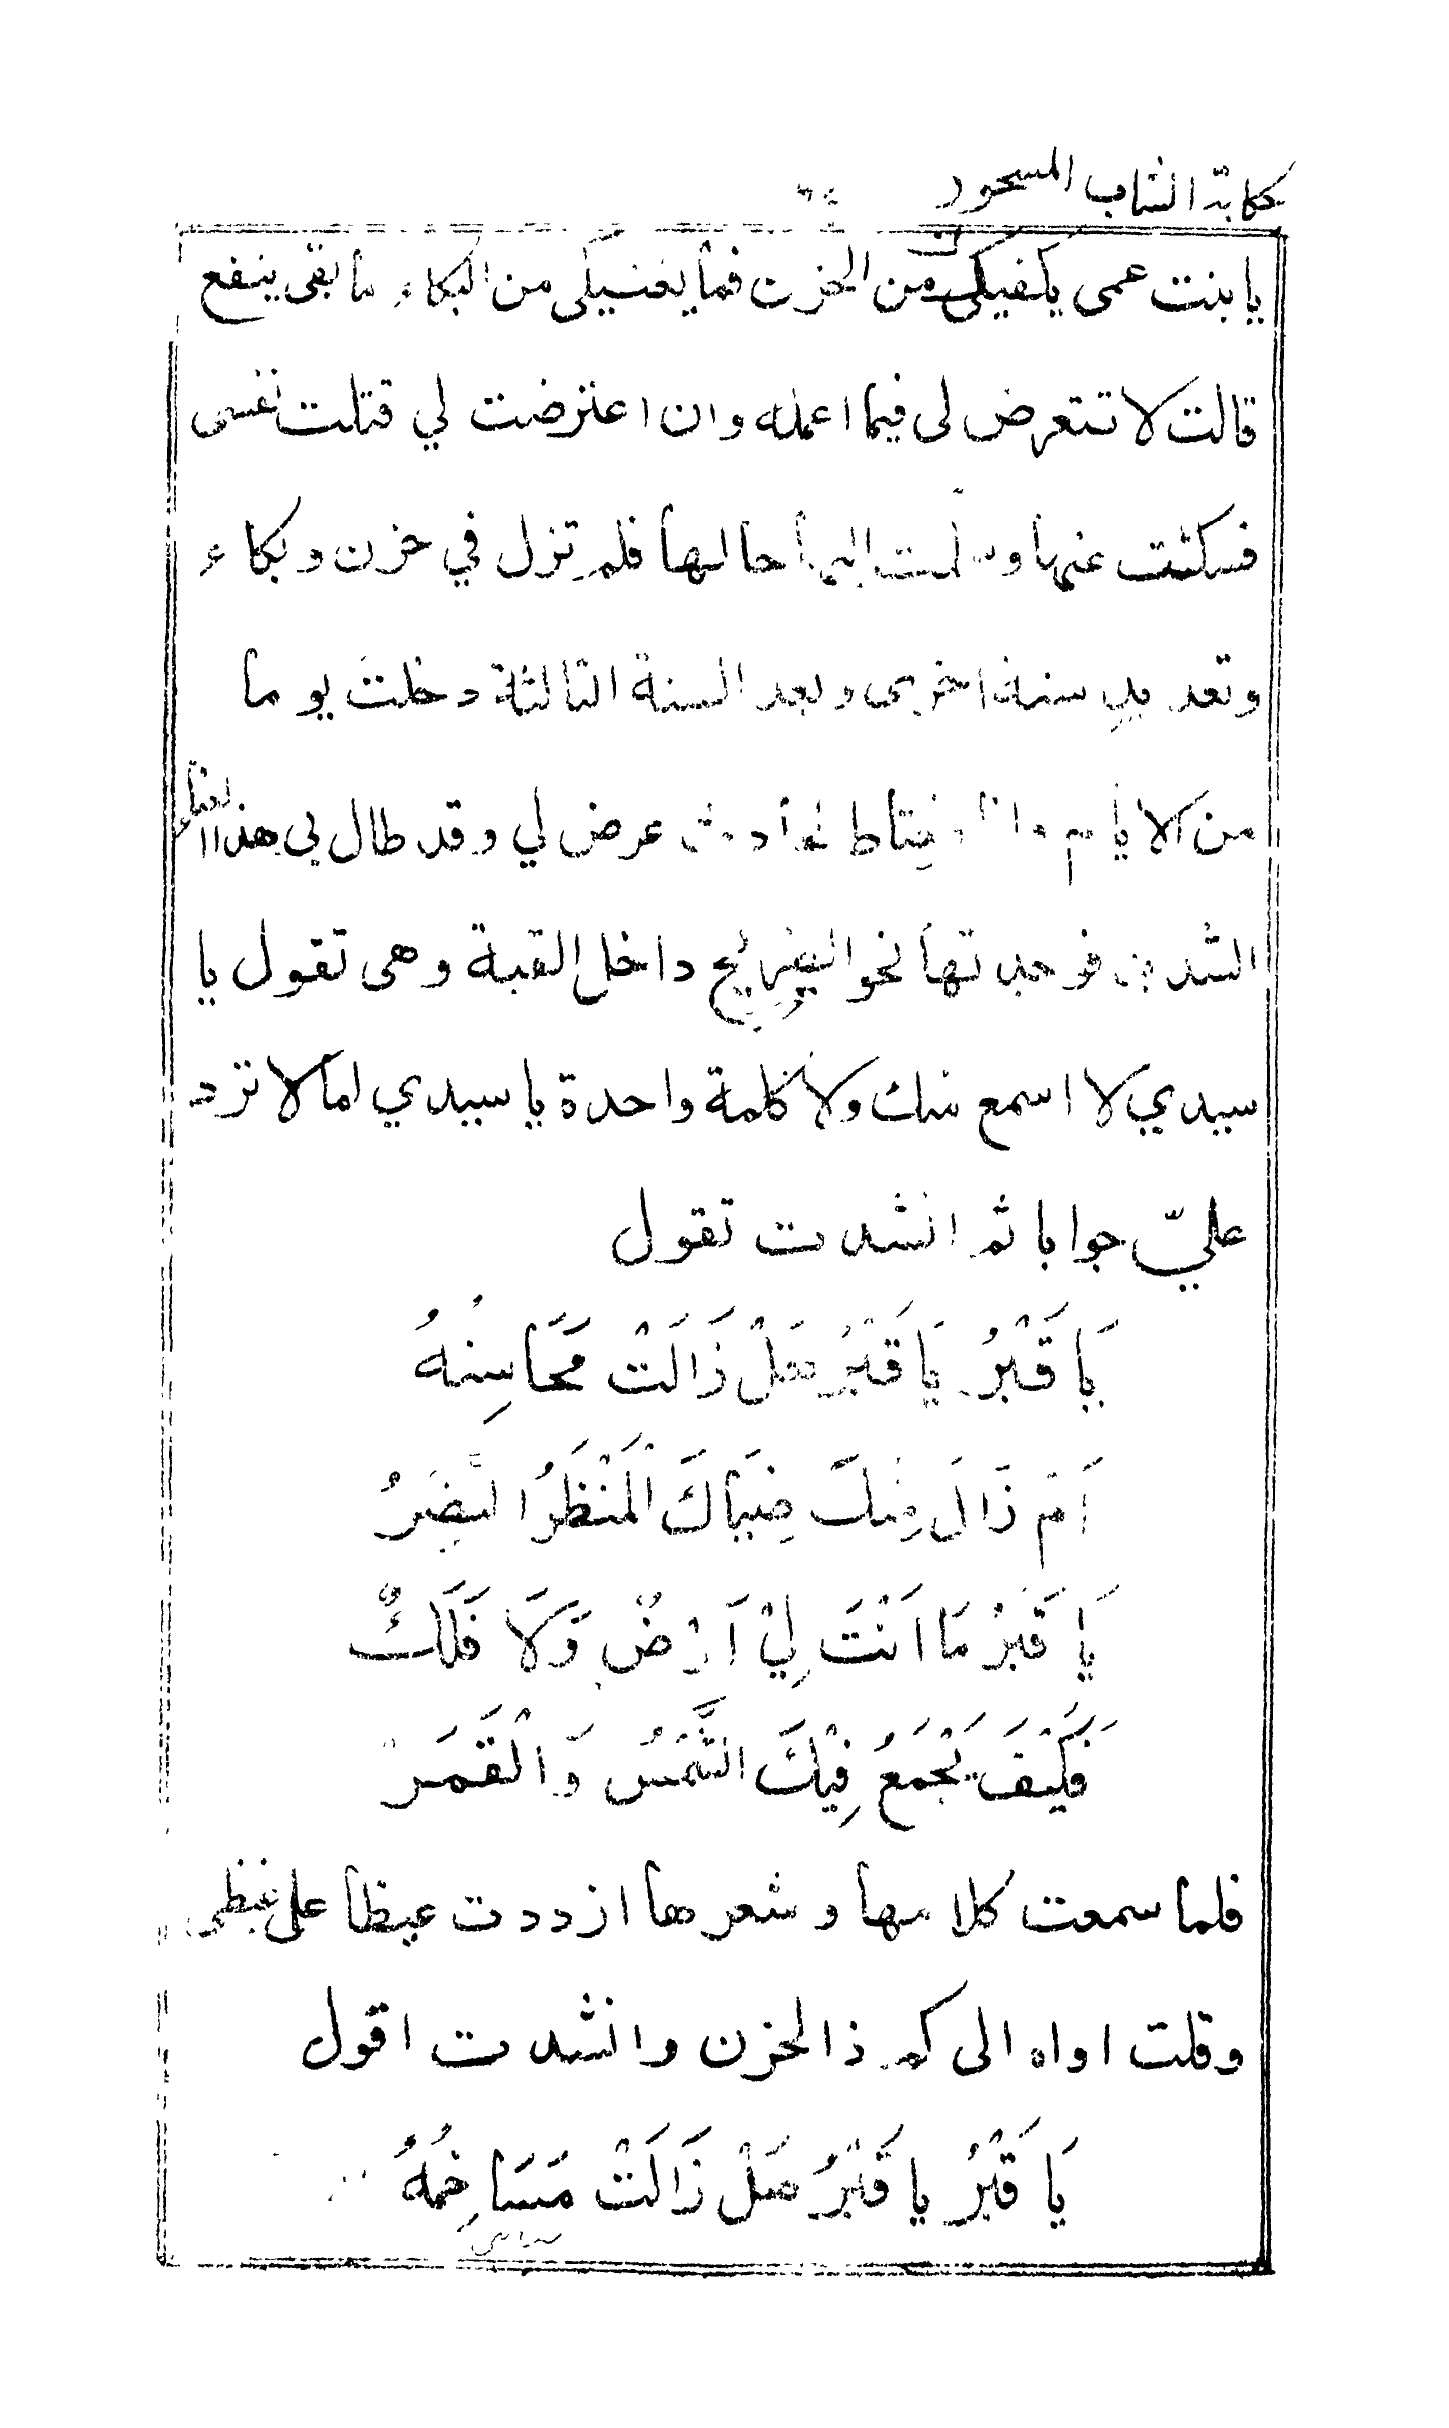 حكاية الشاب المسحور
يا بنت عمى يكفيكى من الحزن فما يغنيكى من البكاء ما بقى ينفع
قالت لا تتعرض لى فيما اعمله وان اعترضت لي قتلت نفسى
فسكتت عنها وسلمت اليها حالها فلم تزل في حزن وبكاء
وتعديد سنة اخرى وبعد السنة الثالثة دخلت يوما
من الايام وانا مغتاظ عرض لي وقد طال بى هذا
الشديد فوجدتها نحو الضريح داخل القبة وهى تقول يا
سيدي لا اسمع منك ولا كلمة واحدة يا سيدي اما لا ترد
عليّ جوابا ثم انشدت تقول
يَا قَبْرُ يَا قَبْرُ هَلْ زَالَتْ مَحَاسِنُهُ
اَمْ زَالَ مِنْكَ ضِيَاكَ الْمَنْظَرُ النَّضِرُ
يَا قَبْرُ مَا اَنْتَ لِيْ اَرْضٌ وَلَا فَلَكٌ
فَكَيْفَ يَجْمَعُ فِيْكَ الشَّمْسُ وَالْقَمَرُ
فلما سمعت كلامها وشعرها ازددت غيظا على غيظى
وقلت اواه الى كم ذا الحزن وانشدت اقول
يَا قَبْرُ يا قَبْرُ هَلْ زَالَتْ مَسَاخِمُهُ